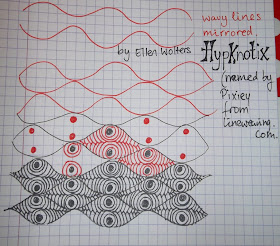 wavy lines
mirrored.
by Ellen Wolters
HypKnotix
(named by
Pixiey
from
lineweaving.
Com.